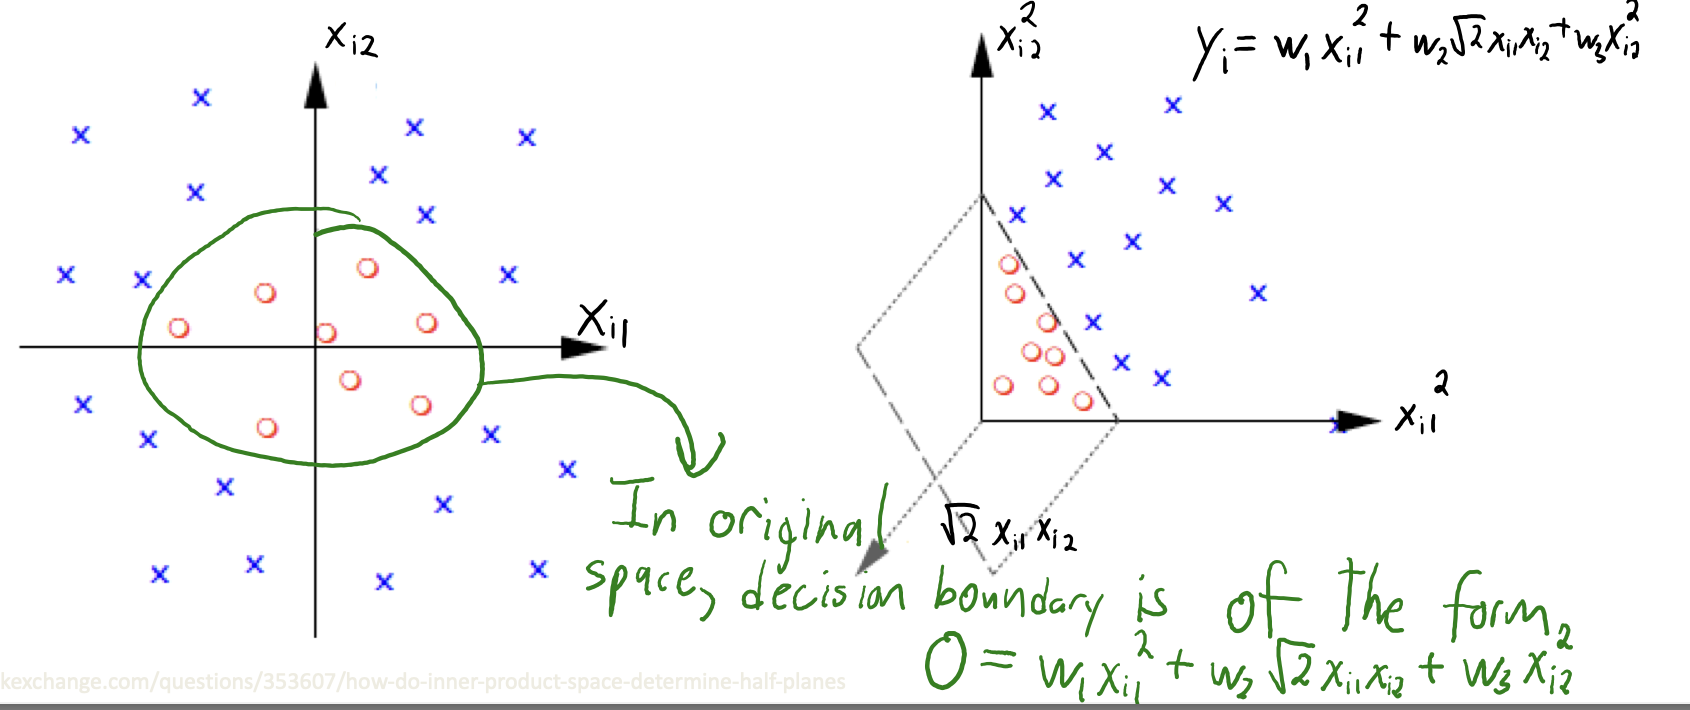 x_{i2}
x_{i1}
x_{i2}^2
y_i = w_1 x_{i1}^2 + w_2 √2 x_{i1} x_{i2} + w_3 x_{i2}^2
x_{i1}^2
√2 x_{i1} x_{i2}
In original
space, decision boundary is of the form
0 = w_1 x_{i1}^2 + w_2 √2 x_{i1} x_{i2} + w_3 x_{i2}^2
kexchange.com/questions/353607/how-do-inner-product-space-determine-half-planes